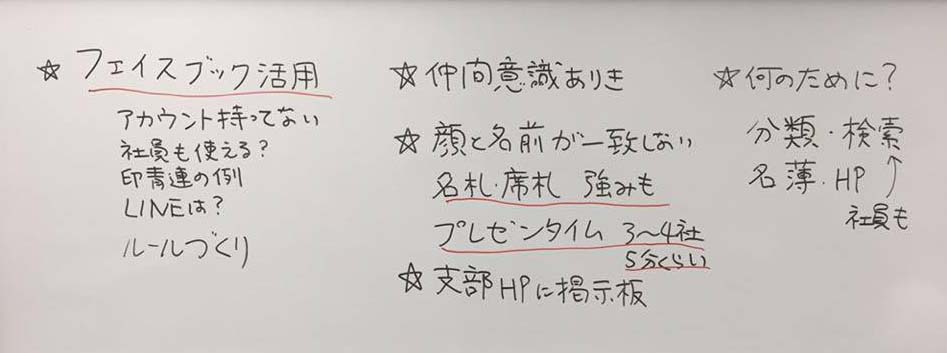 ☆ フェイスブック活用
アカウント持ってない
社員も使える?
印青連の例
LINEは?
ルールづくり
☆仲間意識ありき
☆顔と名前が一致しない
名札・席札 強みも
プレゼンタイム 3〜4社
5分くらい
☆支部HPに掲示板
☆何のために?
分類・検索
名薄・HP ↑
社員も